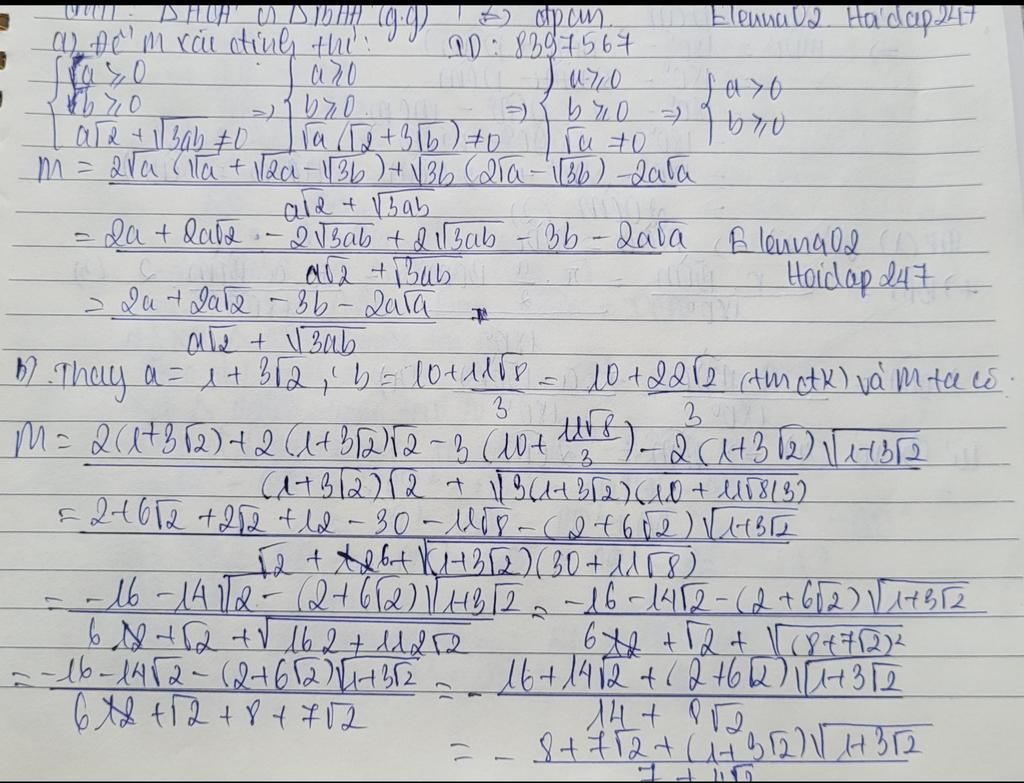 ΔHCA ∽ ΔBAH (g.g) => đpcm. Elenna02. Hoidap247
a) Để M xác định thì: ID: 8397567
{ √a ≥ 0 { a ≥ 0 { a ≥ 0 { a > 0
{ √b ≥ 0 => { b ≥ 0 => { b ≥ 0 => { b ≥ 0
{ a√2 + √3ab ≠ 0 { √a (√2 + 3√b) ≠ 0 { √a ≠ 0
M = 2√a (√a + √2a - √3b) + √3b (2√a - √3b) - 2a√a
a√2 + √3ab
= 2a + 2a√2 - 2√3ab + 2√3ab - 3b - 2a√a Elenna02
a√2 + √3ab Hoidap247
= 2a + 2a√2 - 3b - 2a√a
a√2 + √3ab
b). Thay a = 1 + 3√2 ; b = 10 + 11√8/3 = 10 + 22√2/3 (tmđk) và M ta có
M = 2(1+3√2) + 2(1+3√2)√2 - 3(10 + 11√8/3) - 2(1+3√2)√1+3√2
(1+3√2)√2 + √3(1+3√2)(10 + 11√8/3)
= 2+6√2 + 2√2 + 12 - 30 - 11√8 - (2+6√2)√1+3√2
√2 + 6 + √(1+3√2)(30 + 11√8)
= -16 - 14√2 - (2+6√2)√1+3√2 = -16 - 14√2 - (2+6√2)√1+3√2
6 + √2 + √162 + 112√2 6 + √2 + √(8+7√2)²
= -16 - 14√2 - (2+6√2)√1+3√2 = - 16 + 14√2 + (2+6√2)√1+3√2
6 + √2 + 8 + 7√2 14 + 8√2
= - 8 + 7√2 + (1+3√2)√1+3√2
7 + 4√2